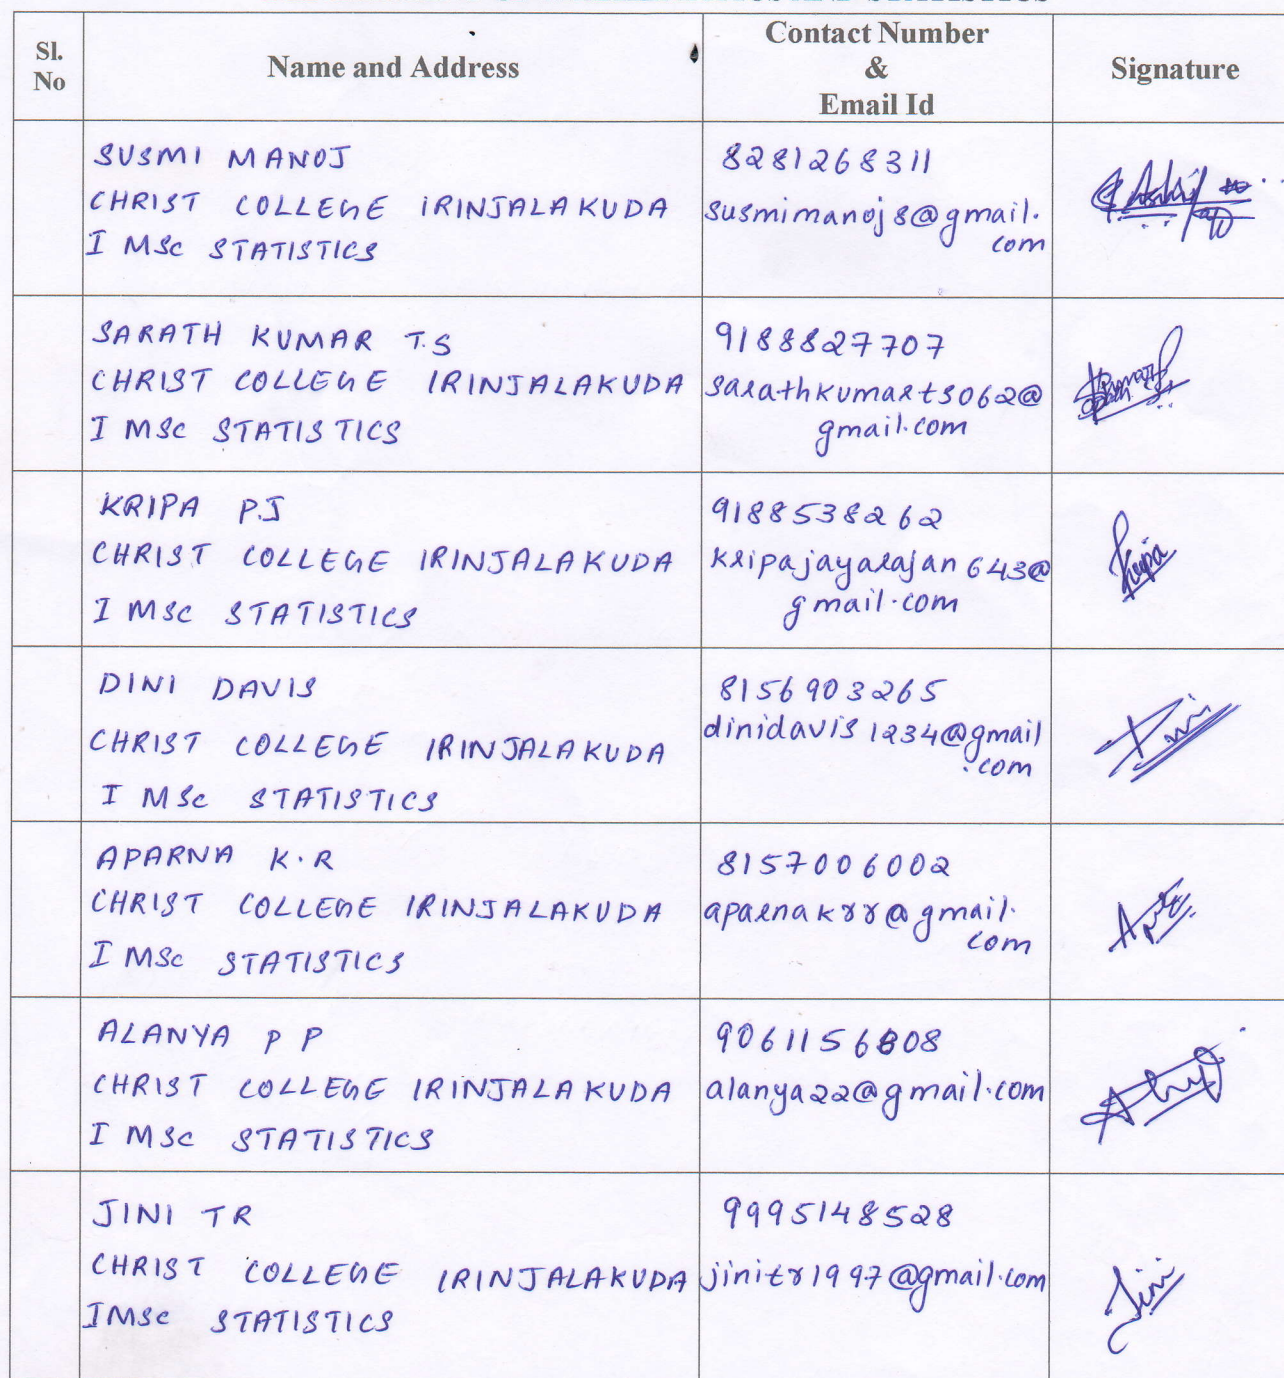 Sl. No
Name and Address
Contact Number
&
Email Id
Signature
SUSMI MANOJ
CHRIST COLLEGE IRINJALAKUDA
I MSc STATISTICS
8281268311
susmimanoj8@gmail.
com
SARATH KUMAR T.S
CHRIST COLLEGE IRINJALAKUDA
I MSc STATISTICS
9188827707
sarathkumarts062@
gmail.com
KRIPA P.J
CHRIST COLLEGE IRINJALAKUDA
I MSc STATISTICS
9188538262
kripajayarajan643@
gmail.com
Kripa
DINI DAVIS
CHRIST COLLEGE IRINJALAKUDA
I MSc STATISTICS
8156903265
dinidavis1234@gmail
.com
Dini
APARNA K.R
CHRIST COLLEGE IRINJALAKUDA
I MSc STATISTICS
8157006002
aparnakrr@gmail.
com
ALANYA P P
CHRIST COLLEGE IRINJALAKUDA
I MSc STATISTICS
9061156808
alanya22@gmail.com
JINI TR
CHRIST COLLEGE IRINJALAKUDA
I MSc STATISTICS
9995148528
jinitr1997@gmail.com
Jini